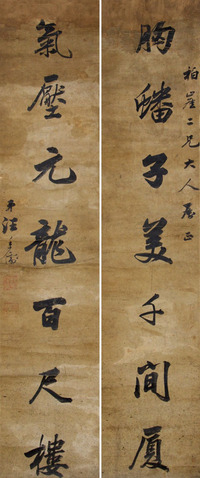 柏崖二兄大人屬正
胸蟠子美千間厦
氣壓元龍百尺樓
弟汪